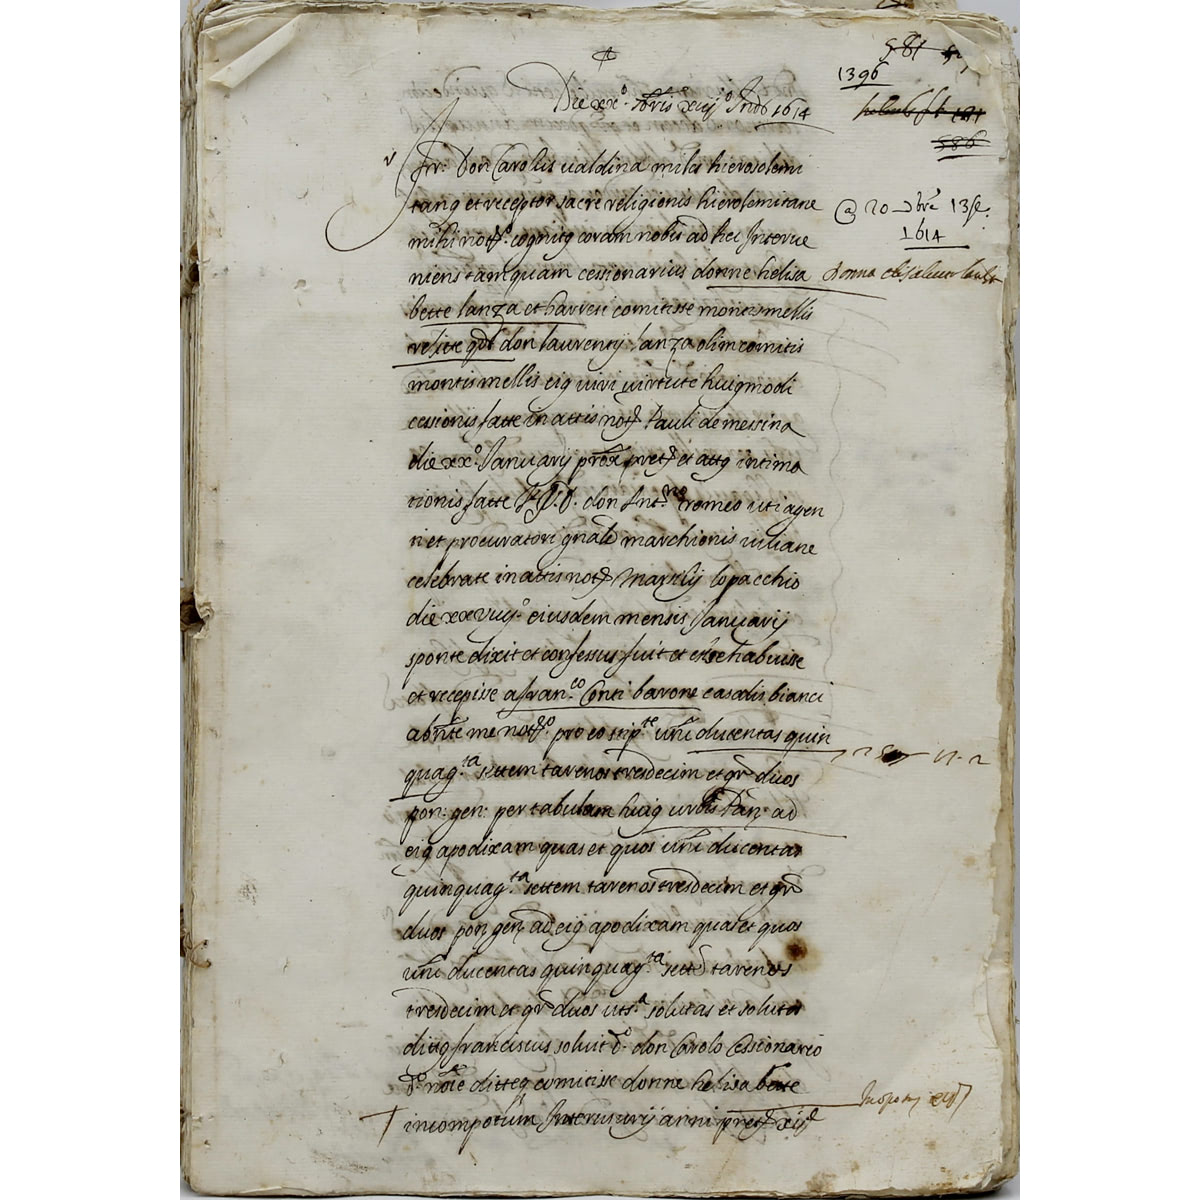 581
1396
Die xx° 9bris xiij° Ind. 1614
586
Frr: Don Carolus ualdina miles hierosolemi
tanus et receptor sacre religionis hierolemitane
mihi notº. cognitus coram nobis ad hec Interue
niens tamquam cessionarius donne helisa
@ 20 9bre 13 Ie.
1614
Donna elisabetta
bette lanza et barresi comitisse montismellis
relitte qdm don laurentij lanza olim comitis
montis mellis eius viri uirtute huiusmodi
cessionis fatte in attis notr Pauli de messina
die xx.° Januarij prox pret et attus intima
tionis fatte don Ant.no romeo uti agen
ti et procuratori gnali marchionis iuliane
celebrate in attis notr Marsilij lo pacchio
die xxviiij.° eiusdem mensis Januarij
sponte dixit et confessus fuit et est habuisse
et recepisse a fran.co Conti barone casalis bianci
abnte me notº. pro eo stipte unc ducentas quin
quag.ta settem tarenos tresdecim et gr duos
pon: gen: per tabulam huius urbis Pan: ad
eius apodixam quas et quos unc ducentas
quinquag.ta settem tarenos tresdecim et gr
duos pon gen ad eius apodixam quas et quos
unc ducentas quinquag.ta sette tarenos
tresdecim et gr duos uts.a solutas et solutos
dittus franciscus soluit d.° don Carolo Cessionario
d.° noie dittes comitisse donne helisa bette
in compotum Interusurij anni pret xij